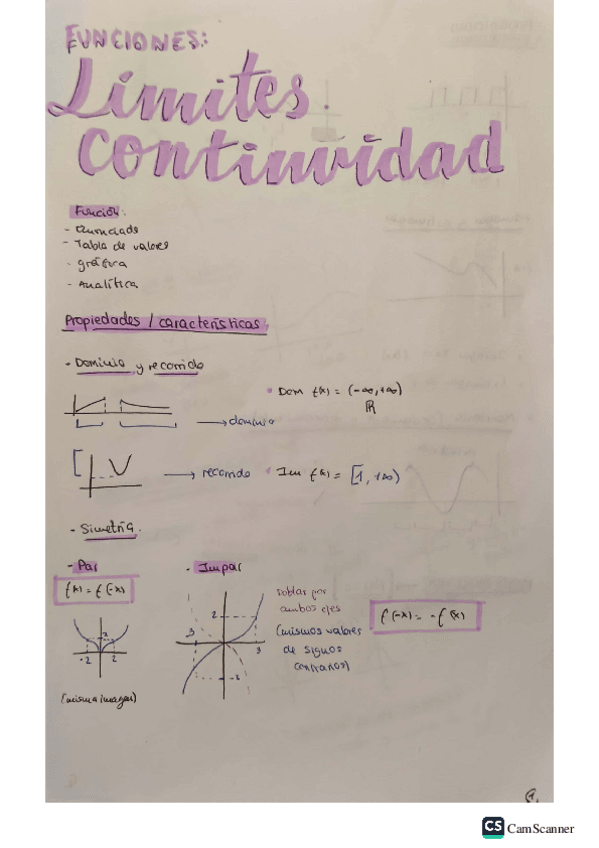 FUNCIONES:
Límites.
Continuidad
Función:
- Enunciado
- Tabla de valores
- gráfica
- Analítica
Propiedades / características
- Dominio y recorrido
Dom f(x) = (-∞, +∞)
ℝ
dominio
recorrido
Im f(x) = [1, +∞)
- Simetría.
- Par
f(x) = f(-x)
2
-2 2
(misma imagen)
- Impar
2
-3 3
-3
Doblar por
ambos ejes
(mismos valores
de signos
contrarios)
f(-x) = -f(x)
1.
CS CamScanner